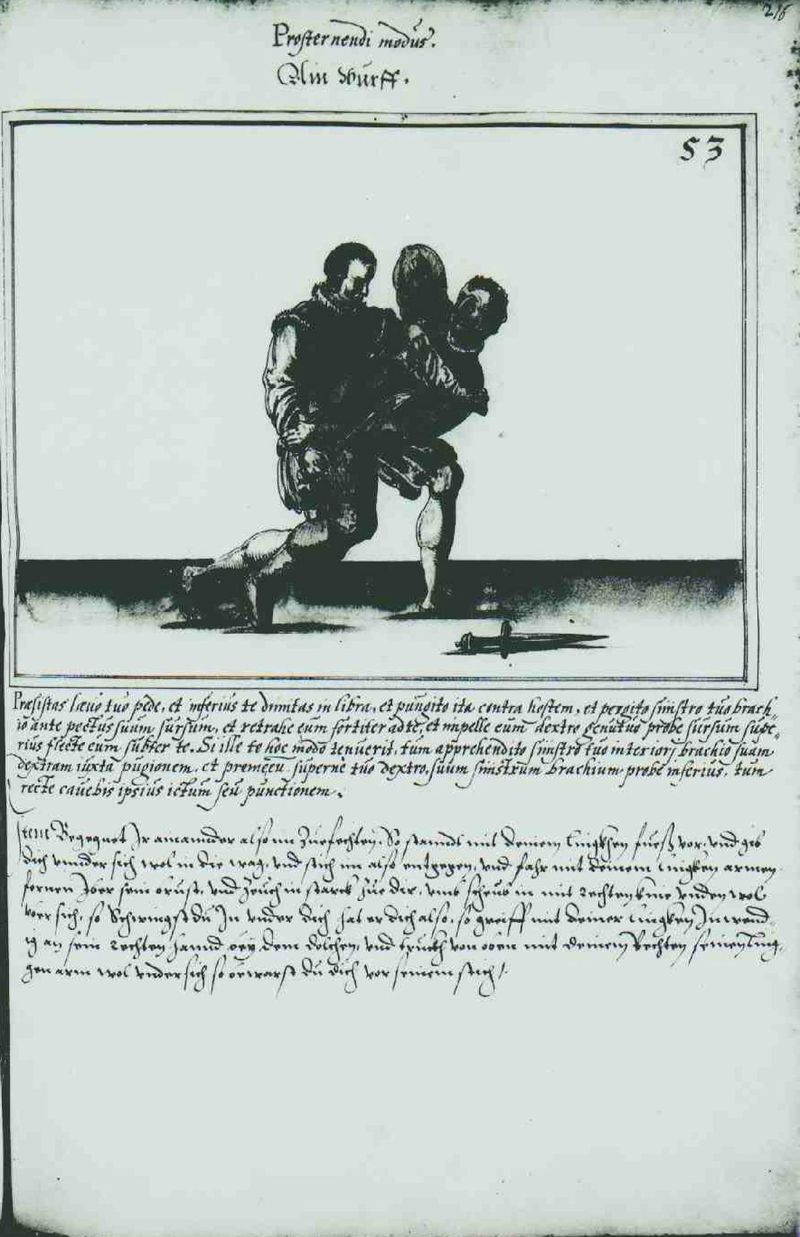 216
Prosternendi modus.
Ain Wurff.
53
Præsistas læuo tuo pede, et inferius te dimitas in libra, et pungito ita contra hostem, et pergito sinistro tuo brach-
io ante pectus suum sursum, et retrahe eum fortiter ad te, et impelle eum dextro genu tuo probe sursum supe-
rius flecte eum subter te. Si ille te hoc modo tenuerit, tum apprehendito sinistro tuo interiorj brachio suam
dextram iuxta pugionem, et premeeu superne tuo dextro, suum sinistrum brachium probe inferius, tum
recte cauebis ipsius ictum seu punctionem.
Item Begegnet Ir ainannder also im Zuefechten, So stanndt mit deinem linngkhen fuesß vor, vnd gib
dich vnnder sich wol in die wag, vnd stich im also entgegen, vnd fahr mit deinem lingken armen
fornen Jber sein brust, vnd zeuch in starck zue dir, vnd scheub in mit rechten knie vnden wol
vber sich, so Schwingst du In vnder dich hat er dich also, so greiff mit deiner lingken Inwend-
ig an sein rechten hannd bey dem dolchen, vnd truckh von oben mit deinem Rechten seinen ling-
gen arm wol vndersich so bewarst du dich vor seinem stich